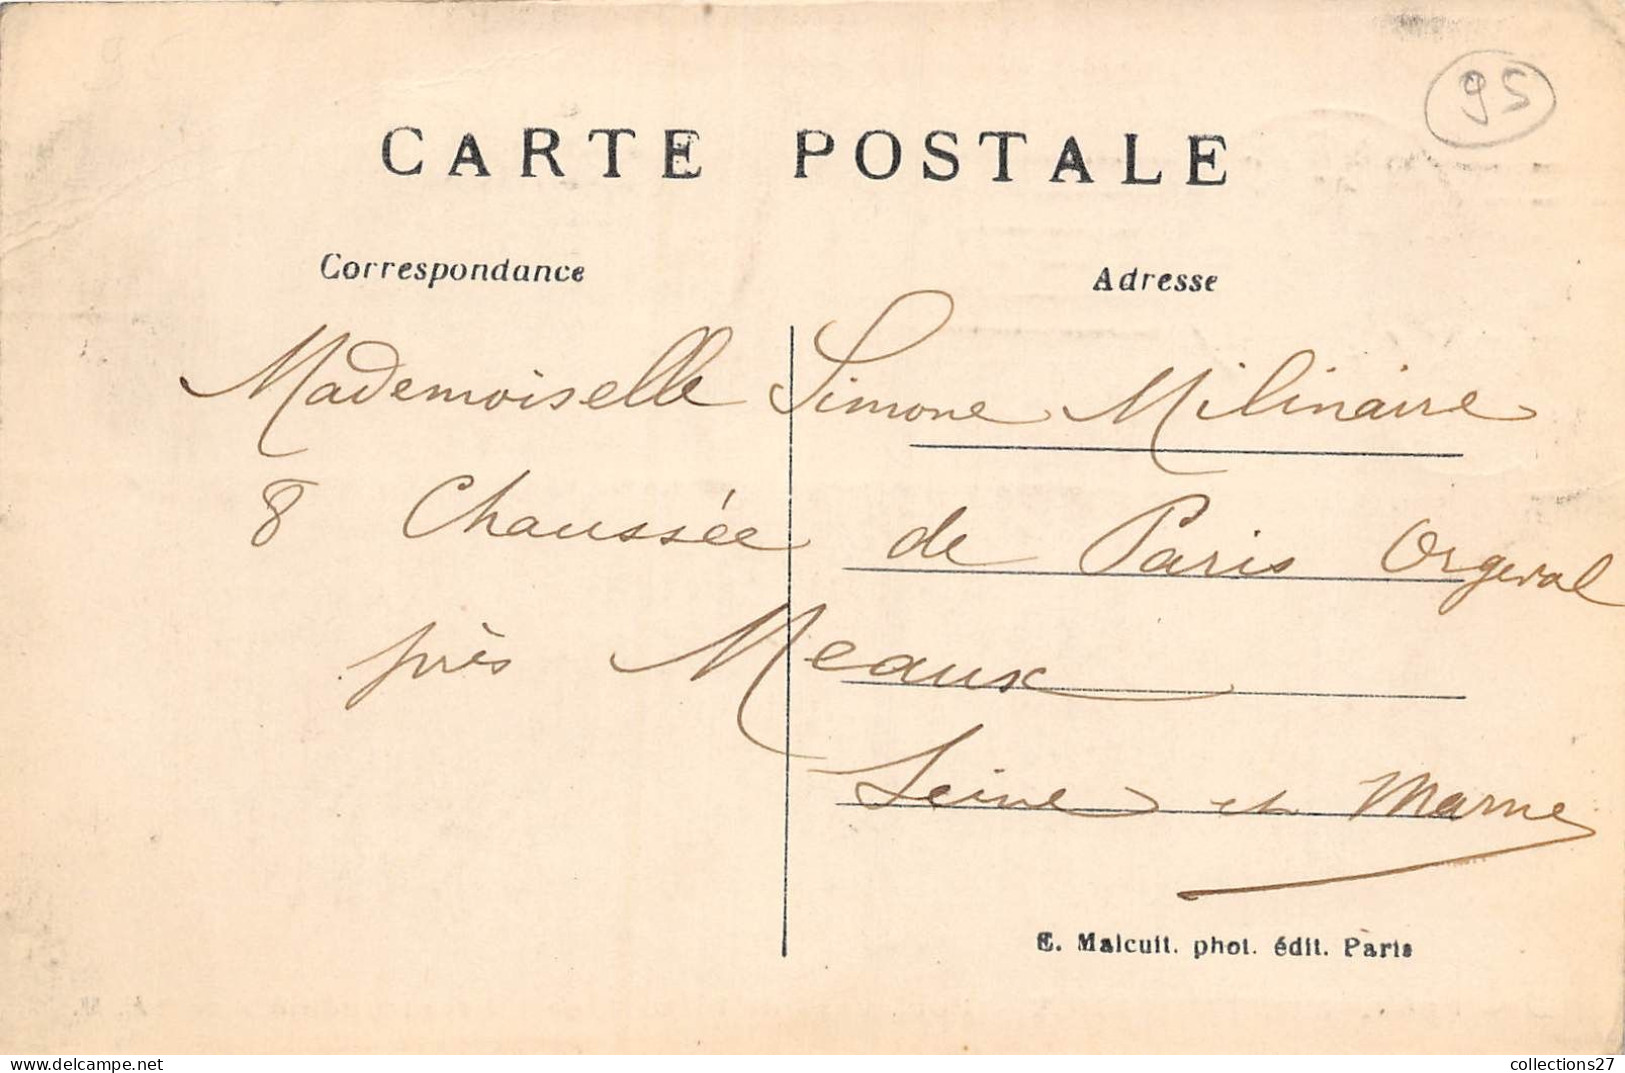 95
CARTE POSTALE
Correspondance
Adresse
Mademoiselle Simone Milinaire
8 Chaussée de Paris Orgeval
près Meaux
Seine et Marne
E. Malcuit. phot. édit. Paris
collections27